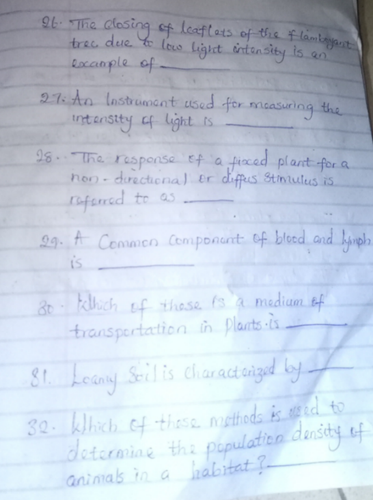 26. The closing of leaflets of the flamboyant
tree due to low light intensity is an
example of ________
27. An Instrument used for measuring the
intensity of light is ________
28. The response of a fixed plant for a
non-directional or diffus stimulus is
referred to as ________
29. A Common Component of blood and lymph
is ________
30. Which of these is a medium of
transportation in plants is ________
31. Loamy Soil is characterized by ________
32. Which of these methods is used to
determine the population density of
animals in a habitat? ________